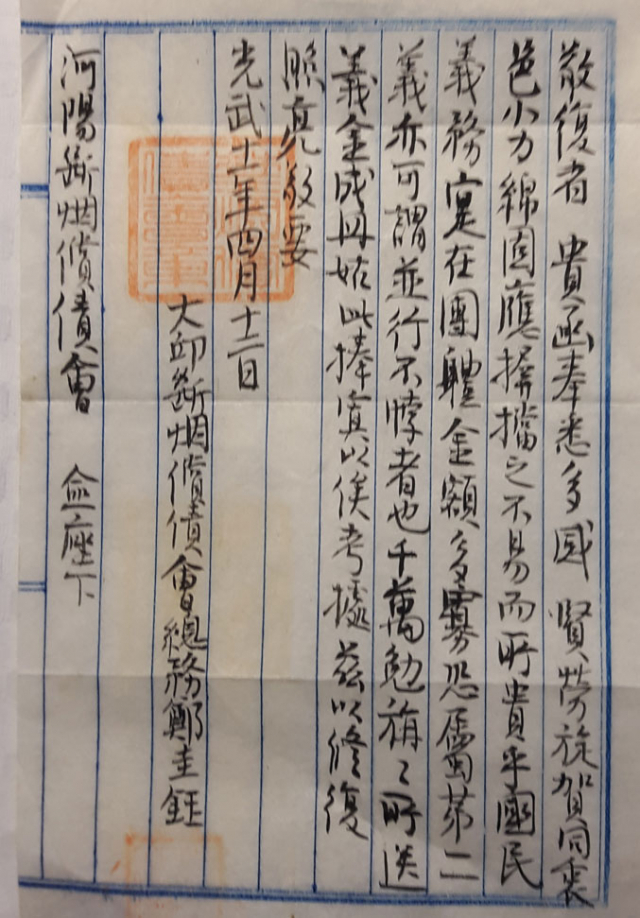 敬復者 貴函奉悉多感 賢勞旋賀同衷
邑小力綿固應擠擋之不易而所貴乎國民
義務寔在團體金額多寡恐屬第二
義亦可謂並行不悖者也千萬勉旃勉旃所送
義金成冊姑此捧寘以俟考據玆以修復
照亮敬要
光武十一年四月十二日
大邱斷烟償債會總務鄭圭鈺
河陽斷烟償債會 僉座下